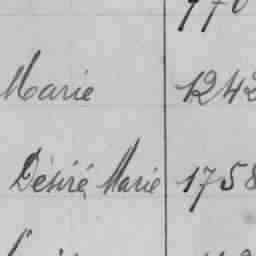 770
Marie 1242
Désiré Marie 1758